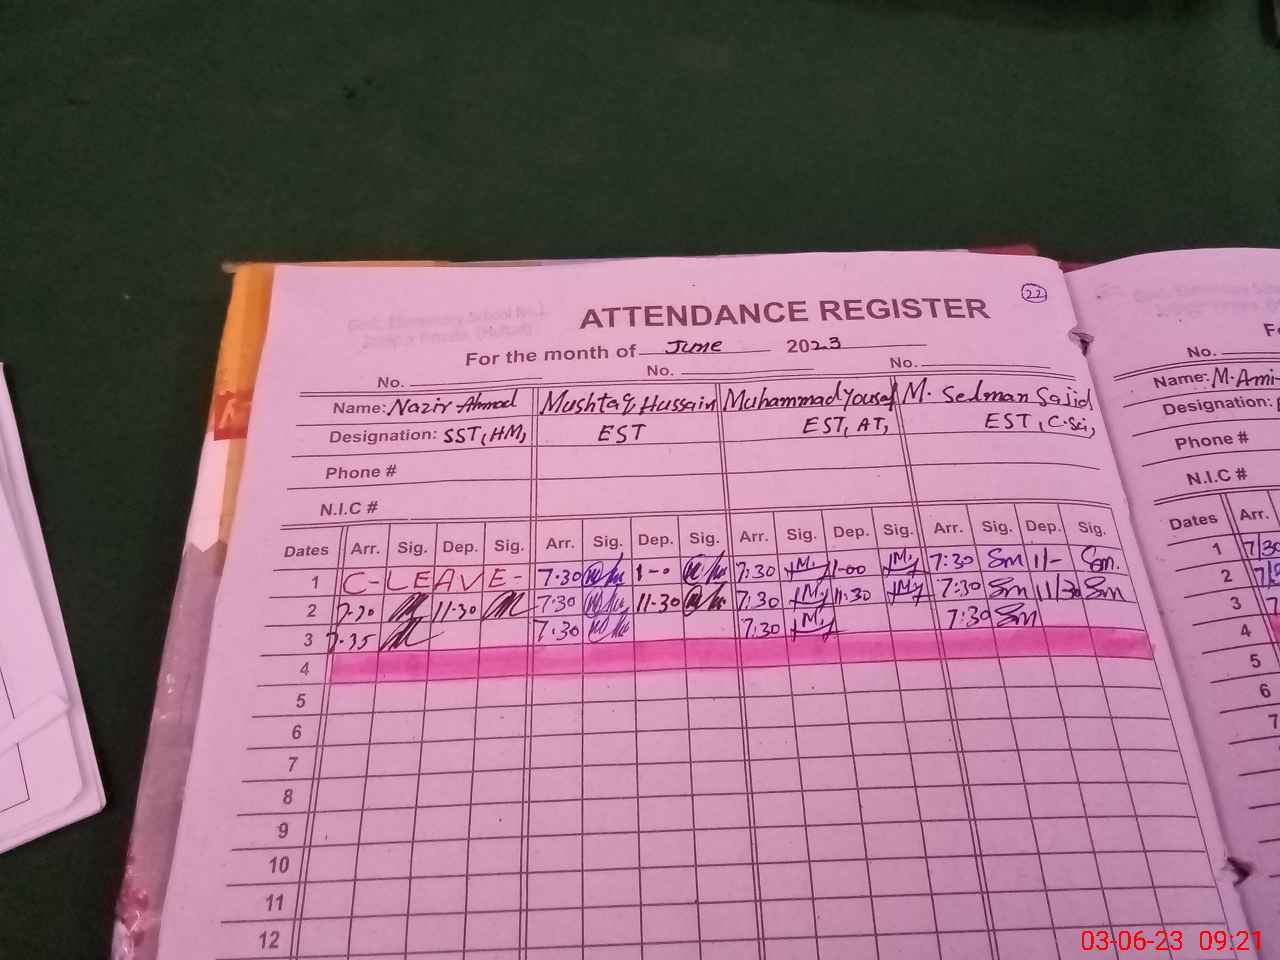 22
ATTENDANCE REGISTER
For the month of June 2023
No. No. No.
Name: Nazir Ahmad Mushtaq Hussain Muhammad Yousaf M. Selman Sajid
Designation: SST, HM, EST EST, AT, EST, C.Sci,
Phone #
N.I.C #
Dates Arr. Sig. Dep. Sig. Arr. Sig. Dep. Sig. Arr. Sig. Dep. Sig. Arr. Sig. Dep. Sig.
1 C-LEAVE- 7.30 1-0 7:30 M.Y 1-00 M.Y 7:30 Sm 1/- Sm.
2 7.30 11-30 7:30 11-30 7:30 M.Y 11:30 M.Y 7:30 Sm 11/30 Sm
3 7.35 7:30 7:30 M.Y 7:30 Sm
4
5
6
7
8
9
10
11
12
No.
Name: M. Ami
Designation:
Phone #
N.I.C #
Dates Arr.
1 7:30
2
3
4
5
6
7
03-06-23 09:21